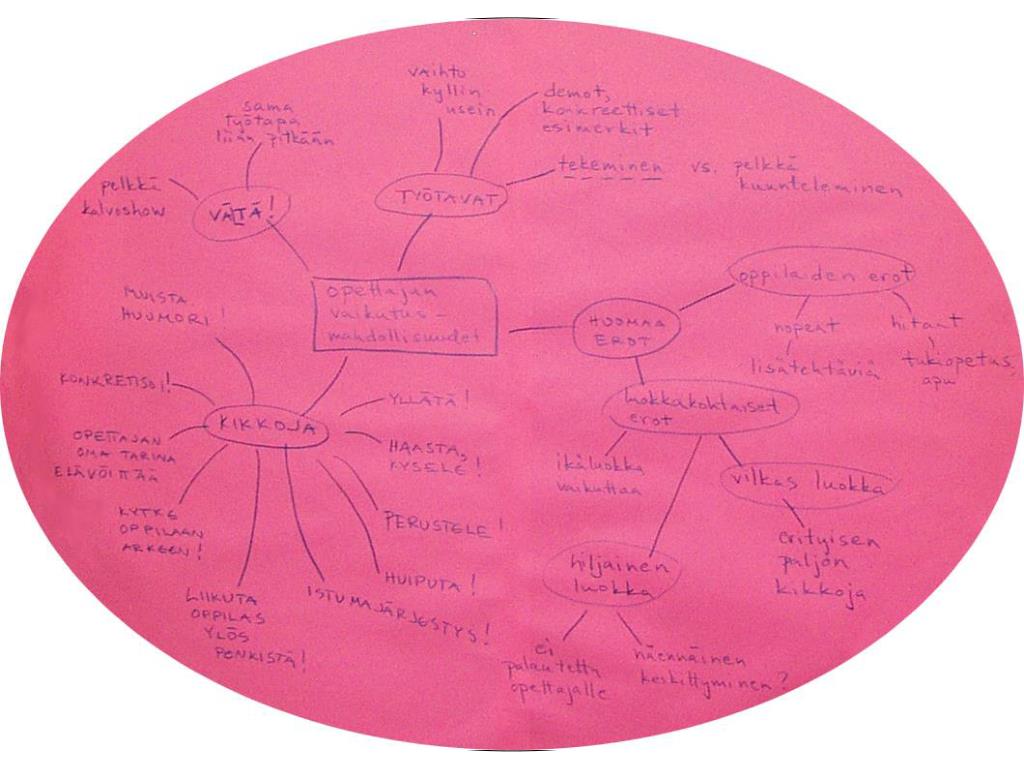 vaihto
kyllin
usein
demot,
konkreettiset
esimerkit
sama
työtapa
liian pitkään
tekeminen vs. pelkkä
kuunteleminen
pelkkä
kalvoshow
VÄLTÄ!
TYÖTAVAT
opettajan
vaikutus-
mahdollisuudet
HUOMAA
EROT
oppilaiden erot
nopeat
lisätehtäviä
hitaat
tukiopetus,
apu
luokkakohtaiset
erot
ikäluokka
vaikuttaa
vilkas luokka
erityisen
paljon
kikkoja
hiljainen
luokka
ei
palautetta
opettajalle
näennäinen
keskittyminen?
MUISTA
HUUMORI!
KONKRETISOI!
KIKKOJA
OPETTAJAN
OMA TARINA
ELÄVÖITTÄÄ
KYTKE
OPPILAAN
ARKEEN!
LIIKUTA
OPPILAS
YLÖS
PENKISTÄ!
ISTUMAJÄRJESTYS!
HUIPUTA!
PERUSTELE!
HAASTA,
KYSELE!
YLLÄTÄ!